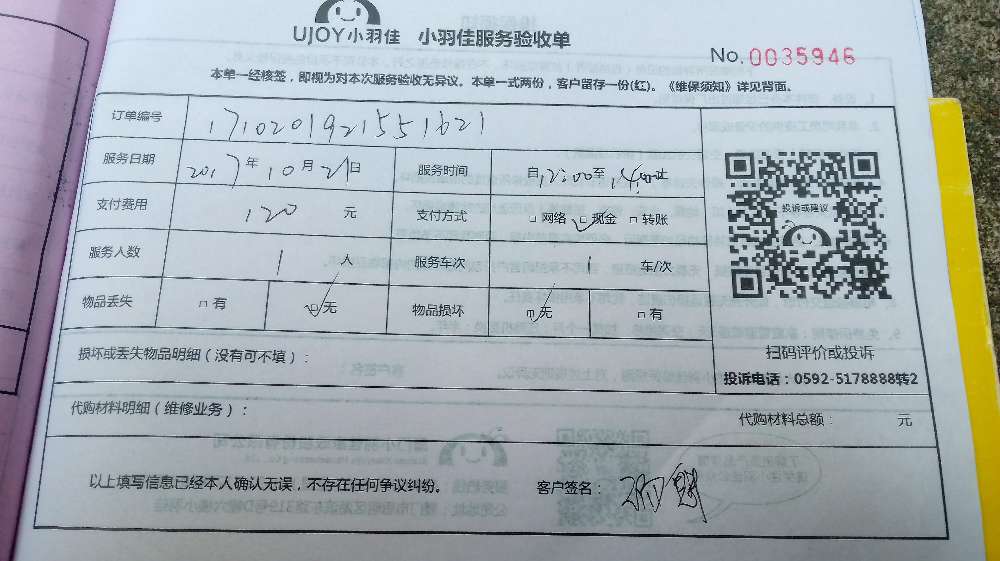 UJOY小羽佳 小羽佳服务验收单
No. 0035946
本单一经核签，即视为对本次服务验收无异议。本单一式两份，客户留存一份(红)。《维保须知》详见背面。
订单编号 1710201921551621
服务日期 2017年10月21日 服务时间 自12:00至14:00止
支付费用 120 元 支付方式 □网络 □现金 □转账
服务人数 1 人 服务车次 1 车/次
物品丢失 □有 □无 物品损坏 □无 □有
投诉或建议
扫码评价或投诉
投诉电话：0592-5178888转2
损坏或丢失物品明细（没有可不填）：
代购材料明细（维修业务）： 代购材料总额： 元
以上填写信息已经本人确认无误，不存在任何争议纠纷。 客户签名：